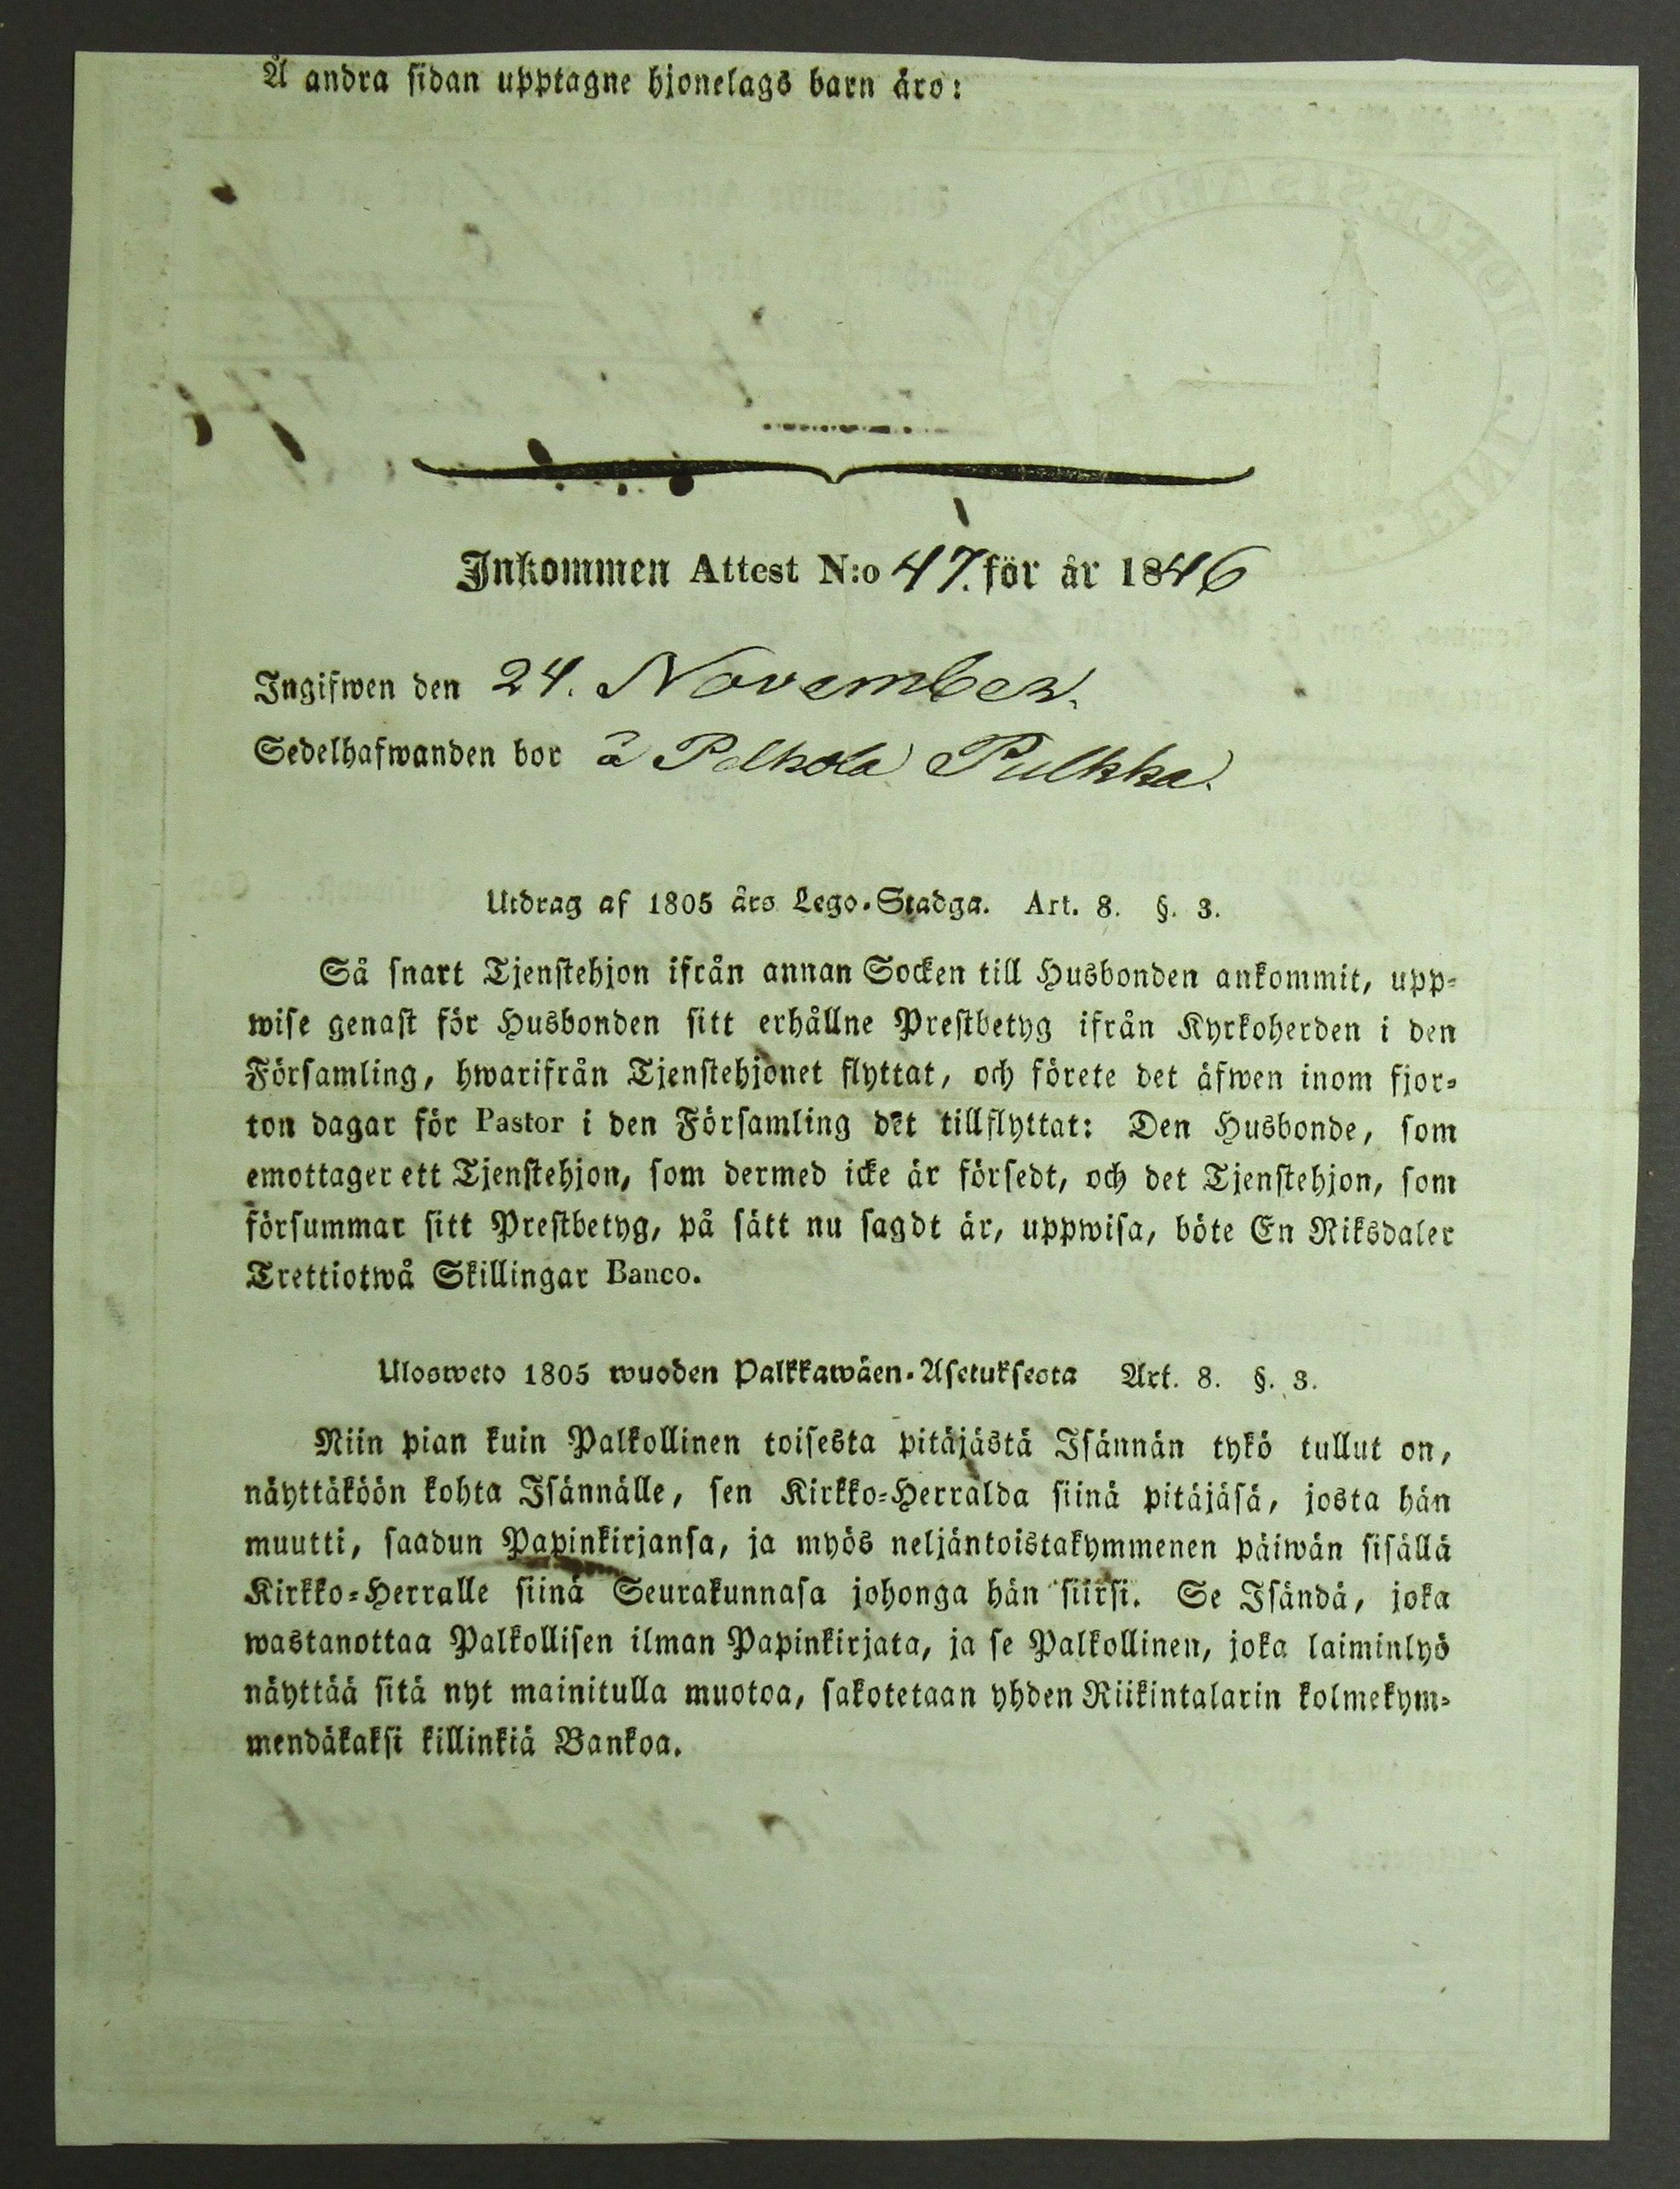 Å andra sidan upptagne hjonelags barn äro:
Inkommen Attest N:o 47. för år 1846
Ingifwen den 24. November.
Sedelhafwanden bor å Pelkola Pulkka.
Utdrag af 1805 års Lego-Stadga. Art. 8. §. 3.
Så snart Tjenstehjon ifrån annan Socken till Husbonden ankommit, upp-
wise genast för Husbonden sitt erhållne Prestbetyg ifrån Kyrkoherden i den
Församling, hwarifrån Tjenstehjonet flyttat, och förete det äfwen inom fjor-
ton dagar för Pastor i den Församling det tillflyttat: Den Husbonde, som
emottager ett Tjenstehjon, som dermed icke är försedt, och det Tjenstehjon, som
försummar sitt Prestbetyg, på sätt nu sagdt är, uppwisa, böte En Riksdaler
Trettiotwå Skillingar Banco.
Ulosweto 1805 wuoden Palkkawäen-Asetuksesta Art. 8. §. 3.
Niin pian kuin Palkollinen toisesta pitäjästä Isännän tykö tullut on,
näyttäköön kohta Isännälle, sen Kirkko-Herralda siinä pitäjäsä, josta hän
muutti, saadun Papinkirjansa, ja myös neljäntoistakymmenen päiwän sisällä
Kirkko-Herralle siinä Seurakunnasa johonga hän siirsi. Se Isändä, joka
wastanottaa Palkollisen ilman Papinkirjata, ja se Palkollinen, joka laiminlyö
näyttää sitä nyt mainitulla muotoa, sakotetaan yhden Riikintalarin kolmekym-
mendäkaksi killinkiä Bankoa.